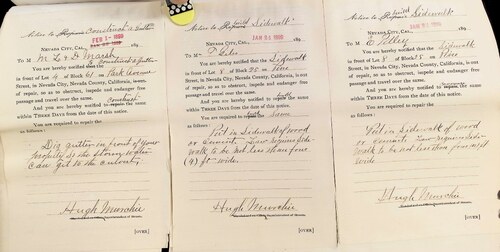 Notice to Repair Construct a Gutter
FEB 1- 1898
NEVADA CITY, CAL., 189
To M
You are hereby notified that the
in front of Lot of Block 61 on Park Avenue
Street, in Nevada City, Nevada County, California, is out
of repair, so as to obstruct, impede and endanger free
passage and travel over the same.
And you are hereby notified to construct repair the same
within THREE DAYS from the date of this notice.
You are required to repair the
as follows:
Dig gutter in front of your
property so the storm water
can get to the culvert
Hugh Murchie
[OVER]
Notice to build Sidewalk.
NEVADA CITY, CAL., 189
To
You are hereby notified that the Sidewalk
in front of Lot 8 of Block on Pine
Street, in Nevada City, Nevada County, California, is out
of repair, so as to obstruct, impede and endanger free
passage and travel over the same.
And you are hereby notified to build repair the same
within THREE DAYS from the date of this notice.
You are required to repair the same
as follows:
Put in Sidewalk of wood
or cement. Law requires side-
walk to be not less than four
(4) ft wide.
Hugh Murchie
[OVER]
Notice to build Sidewalk
NEVADA CITY, CAL., 189
To
You are hereby notified that the Sidewalk
in front of Lot of Block on Pine
Street, in Nevada City, Nevada County, California, is out
of repair, so as to obstruct, impede and endanger free
passage and travel over the same.
And you are hereby notified to build repair the same
within THREE DAYS from the date of this notice.
You are required to repair the
as follows:
Put in Sidewalk of wood
or cement. Law requires side-
walk to be not less than four (4) ft
wide
Hugh Murchie
[OVER]